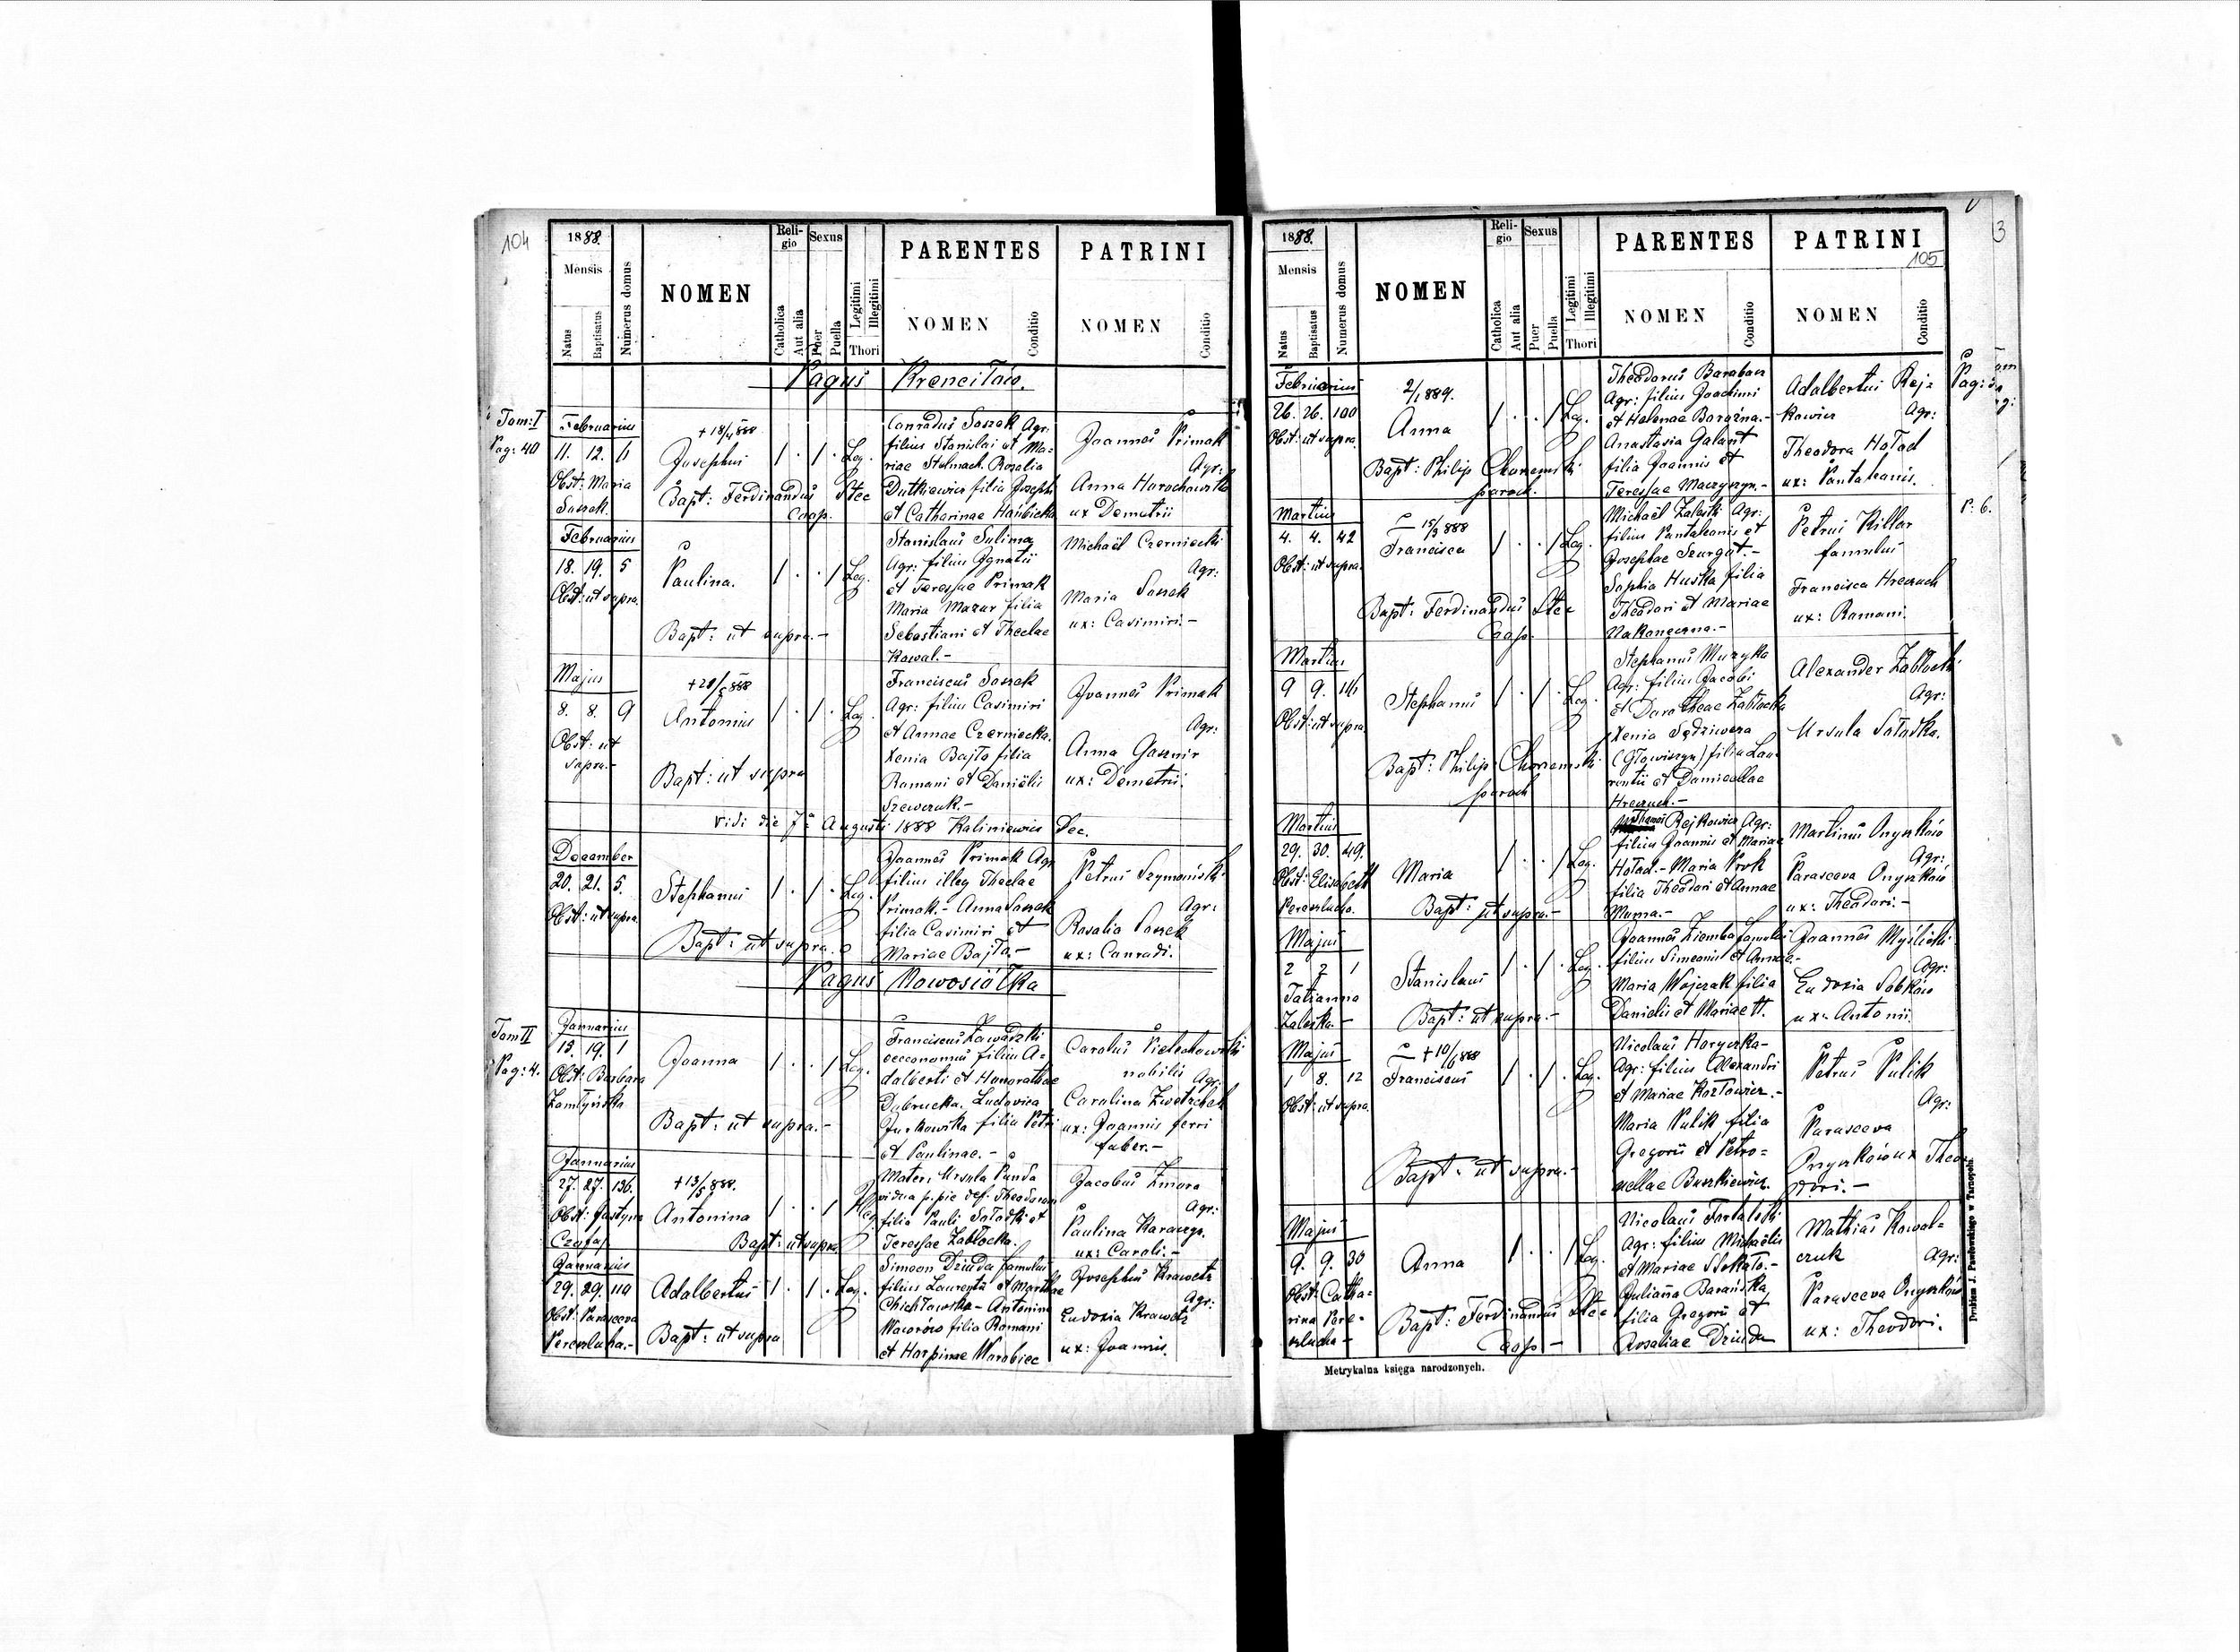 104
1888.
Mensis
Natus
Baptisatus
Numerus domus
NOMEN
Religio
Catholica
Aut alia
Sexus
Puer
Puella
Legitimi
Illegitimi
Thori
PARENTES
NOMEN
Conditio
PATRINI
NOMEN
Conditio
Pagus Krenciłów.
Tom: I
Pag: 40
Februarius
11. 12. 11
Obst: Maria
Saszek.
+ 18/4 888
Josephus
1 . 1 . Leg.
Bapt: Ferdinandus Stec
Coop.
Conradus Soszek Agr:
filius Stanislai et Ma-
riae Stelmach. Rozalia
Dutkiewicz filia Josephi
et Catharinae Haubicka
Joannes Primak
Agr:
Anna Horochowska
ux Demetrii
Februarius
18. 19. 5
Obst: ut supra.
Paulina.
1 . . 1 Leg.
Bapt: ut supra.-
Stanislaus Sulima
Agr: filius Ignatii
et Teressae Primak
Maria Mazur filia
Sebastiani et Theclae
Kowal.-
Michaël Czerniecki
Agr:
Maria Sossek
ux: Casimiri.-
Majus
8. 8. 9
Obst: ut
supra.-
+20/5 888
Antonius
1 . 1 . Leg.
Bapt: ut supra
Franciscus Sossek
Agr: filius Casimiri
et Annae Czerniecka.
Xenia Bajto filia
Romani et Daniëlis
Szewczuk.-
Joannes Primak
Agr:
Anna
ux: Demetrii.
Vidi die 7a Augusti 1888 Kaliniewicz Dec.
December
20. 21. 5.
Obst: ut supra.
Stephanus
1 . 1 . Leg.
Bapt: ut supra.
Joannes Primak Agr
filius illeg Theclae
Primak.- Anna Sossek
filia Casimiri et
Mariae Bajto.-
Petrus Szymański
Agr:
Rosalia Sossek
ux: Conradi.
Pagus Nowosiółka
Tom II
Pag: 4.
Januarius
15. 19. 1
Obst: Barbara
Zamłyńska
Joanna
1 . . 1 Leg.
Bapt: ut supra.-
Franciscus Zawadzki
oeconomus filius A-
dalberti et Honorathae
Dobrucka. Ludovica
Jurkowska filia Petri
et Paulinae.-
Carolus Pielechowski
nobilis
Agr:
Carolina Zwetschek
ux: Joannis ferri
faber.-
Januarius
27. 27. 136.
Obst: Justyna
Czafa
+13/5 888.
Antonina
1 . . 1 Illeg
Bapt: ut supra
Mater: Ursula Punda
vidua p. pie def: Theodorum
filia Pauli Sałacki et
Teressae Zabłocka.
Jacobus Zmora
Agr:
Paulina Karaczyn.
ux: Caroli.-
Januarius
29. 29. 119
Obst: Parasceva
Pereszlucha.-
Adalbertus
1 . 1 . Leg.
Bapt: ut supra
Simeon Dziuda famulus
filius Laurentii et Marthae
Chichłowska - Antonina
Waworów filia Romani
et Harpinae Worobiec
Josephus Krawetz
Agr:
Eudoxia Krawetz
ux: Joannis.
1888.
105
3
Mensis
Natus
Baptisatus
Numerus domus
NOMEN
Religio
Catholica
Aut alia
Sexus
Puer
Puella
Legitimi
Illegitimi
Thori
PARENTES
NOMEN
Conditio
PATRINI
NOMEN
Conditio
Februarius
26. 26. 100
Obst: ut supra.
2/1 889.
Anna
1 . . 1 Leg.
Bapt: Philip Choriemski
paroch.
Theodorus Baraban
Agr: filius Joachimi
et Helenae .-
Anastasia Galant
filia Joannis et
Teressae Maczyszyn.-
Adalbertus Rej-
kowicz Agr:
Theodora Hołod
ux: Pantaleonis.
P: 6.
Martius
4. 4. 42
Obst: ut supra.
15/3 888
Francisca
1 . . 1 Leg.
Bapt: Ferdinandus Stec
Coop.
Michaël Zaleski Agr:
filius Pantaleonis et
Josephae .-
Sophia Huska filia
Theodori et Mariae
Nakoneczna.-
Petrus Killar
famulus
Francisca Hreczuch
ux: Romani.
Martius
9 9. 111
Obst: ut supra
Stephanus
1 . 1 . Leg.
Bapt: Philip: Choriemski
paroch
Stephanus Muzyka
Agr: filius Jacobi
et Dorotheae Zabłocka
Xenia Sędziwera
(Głowiszyn) filia Lau-
rentii et Danicellae
Hreczuch.-
Alexander Zabłocki
Agr:
Ursula Sałacka.
Martius
29. 30. 49.
Obst: Elisabeth
Pereszlucha.
Maria
1 . . 1 Leg.
Bapt: ut supra.-
Rejkowicz Agr:
filius Joannis et Mariae
Hołod.- Maria Prok
filia Theodori et Annae
Muma.-
Martinus Onyszków
Agr:
Parasceva Onyszków
ux: Theodori.-
Majus
2 2 1
Tatianna
Zaleska.-
Stanislaus
1 . 1 . Leg.
Bapt: ut supra.-
Joannes Ziemba famulus
filius Simeonis et Annae.-
Maria Wojczak filia
Danielis et Mariae H.
Joannes Myślicki
Agr:
Eudoxia Sobków
ux: Antonii.
Majus
1 8. 12
Obst: ut supra.
+10/6 888
Franciscus
1 . 1 . Leg.
Bapt: ut supra.-
Nicolaus Horyszka-
Agr: filius Alexandri
et Mariae Kozłowicz.-
Maria Pulik filia
Gregorii et Petro-
nellae Buszkiewicz.
Petrus Pulik
Agr:
Parasceva
Onyszków ux Theo-
dori.-
Majus
9. 9. 30
Obst: Catha-
rina Pere-
szlucha-
Anna
1 . . 1 Leg.
Bapt: Ferdinandus Stec
Coop-
Nicolaus Fortalski
Agr: filius Michaëlis
et Mariae Stokało.-
Julianna Barańska,
filia Gregorii et
Rosaliae Dziuda
Mathias Kowal-
czuk Agr:
Parasceva Onyszków
ux: Theodori.
Metrykalna księga narodzonych.
Drukiem J. Pawłowskiego w Tarnopolu.